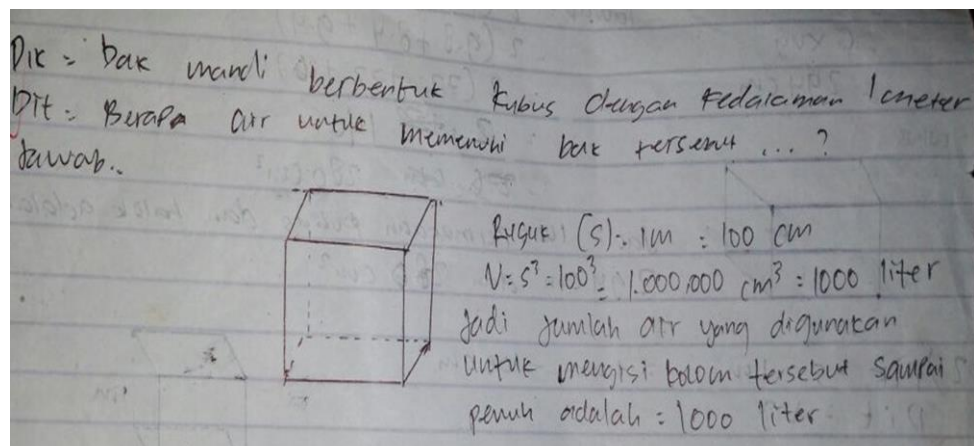 Dik = bak mandi berbentuk kubus dengan kedalaman 1 meter
Dit = Berapa air untuk memenuhi bak tersebut ... ?
Jawab..
Rusuk (s) = 1m = 100 cm
V = s³ = 100³ = 1.000.000 cm³ = 1000 liter
Jadi jumlah air yang digunakan
untuk mengisi kolam tersebut sampai
penuh adalah = 1000 liter